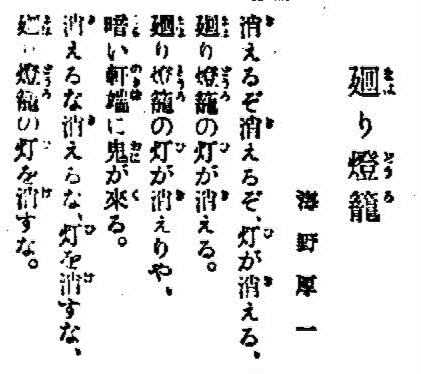 廻り燈籠
海野厚一
消えるぞ消えるぞ、灯が消える、
廻り燈籠の灯が消える。
廻り燈籠の灯が消えりや、
暗い軒端に鬼が來る。
消えるな消えるな、灯を消すな、
廻り燈籠の灯を消すな。